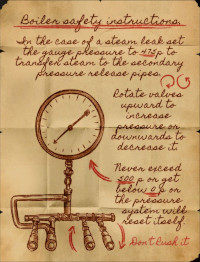 Boiler safety instructions.
In the case of a steam leak set
the gauge pressure to 435p to
transfer steam to the secondary
pressure release pipes.
Rotate valves
upward to
increase
pressure or
downwards to
decrease it.
Never exceed
500 p or get
below 0 p or the
pressure
system will
reset itself
Don't Rush it